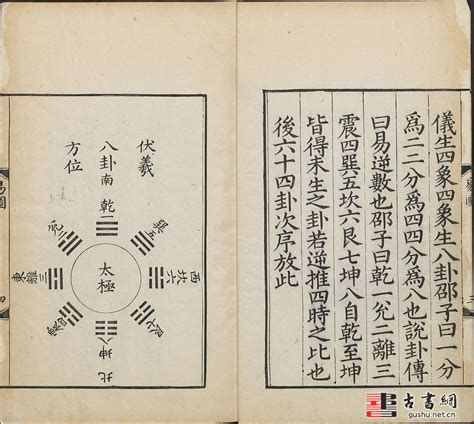 儀生四象四象生八卦邵子曰一分
爲二二分爲四四分爲八也說卦傳
曰易逆數也邵子曰乾一兌二離三
震四巽五坎六艮七坤八自乾至坤
皆得未生之卦若逆推四時之比也
後六十四卦次序放此
伏羲
八卦
方位
南
乾一
巽五
兌二
西
坎六
太極
離三
東
艮七
震四
坤八
北
易圖
四
古書網
gushu.net.cn